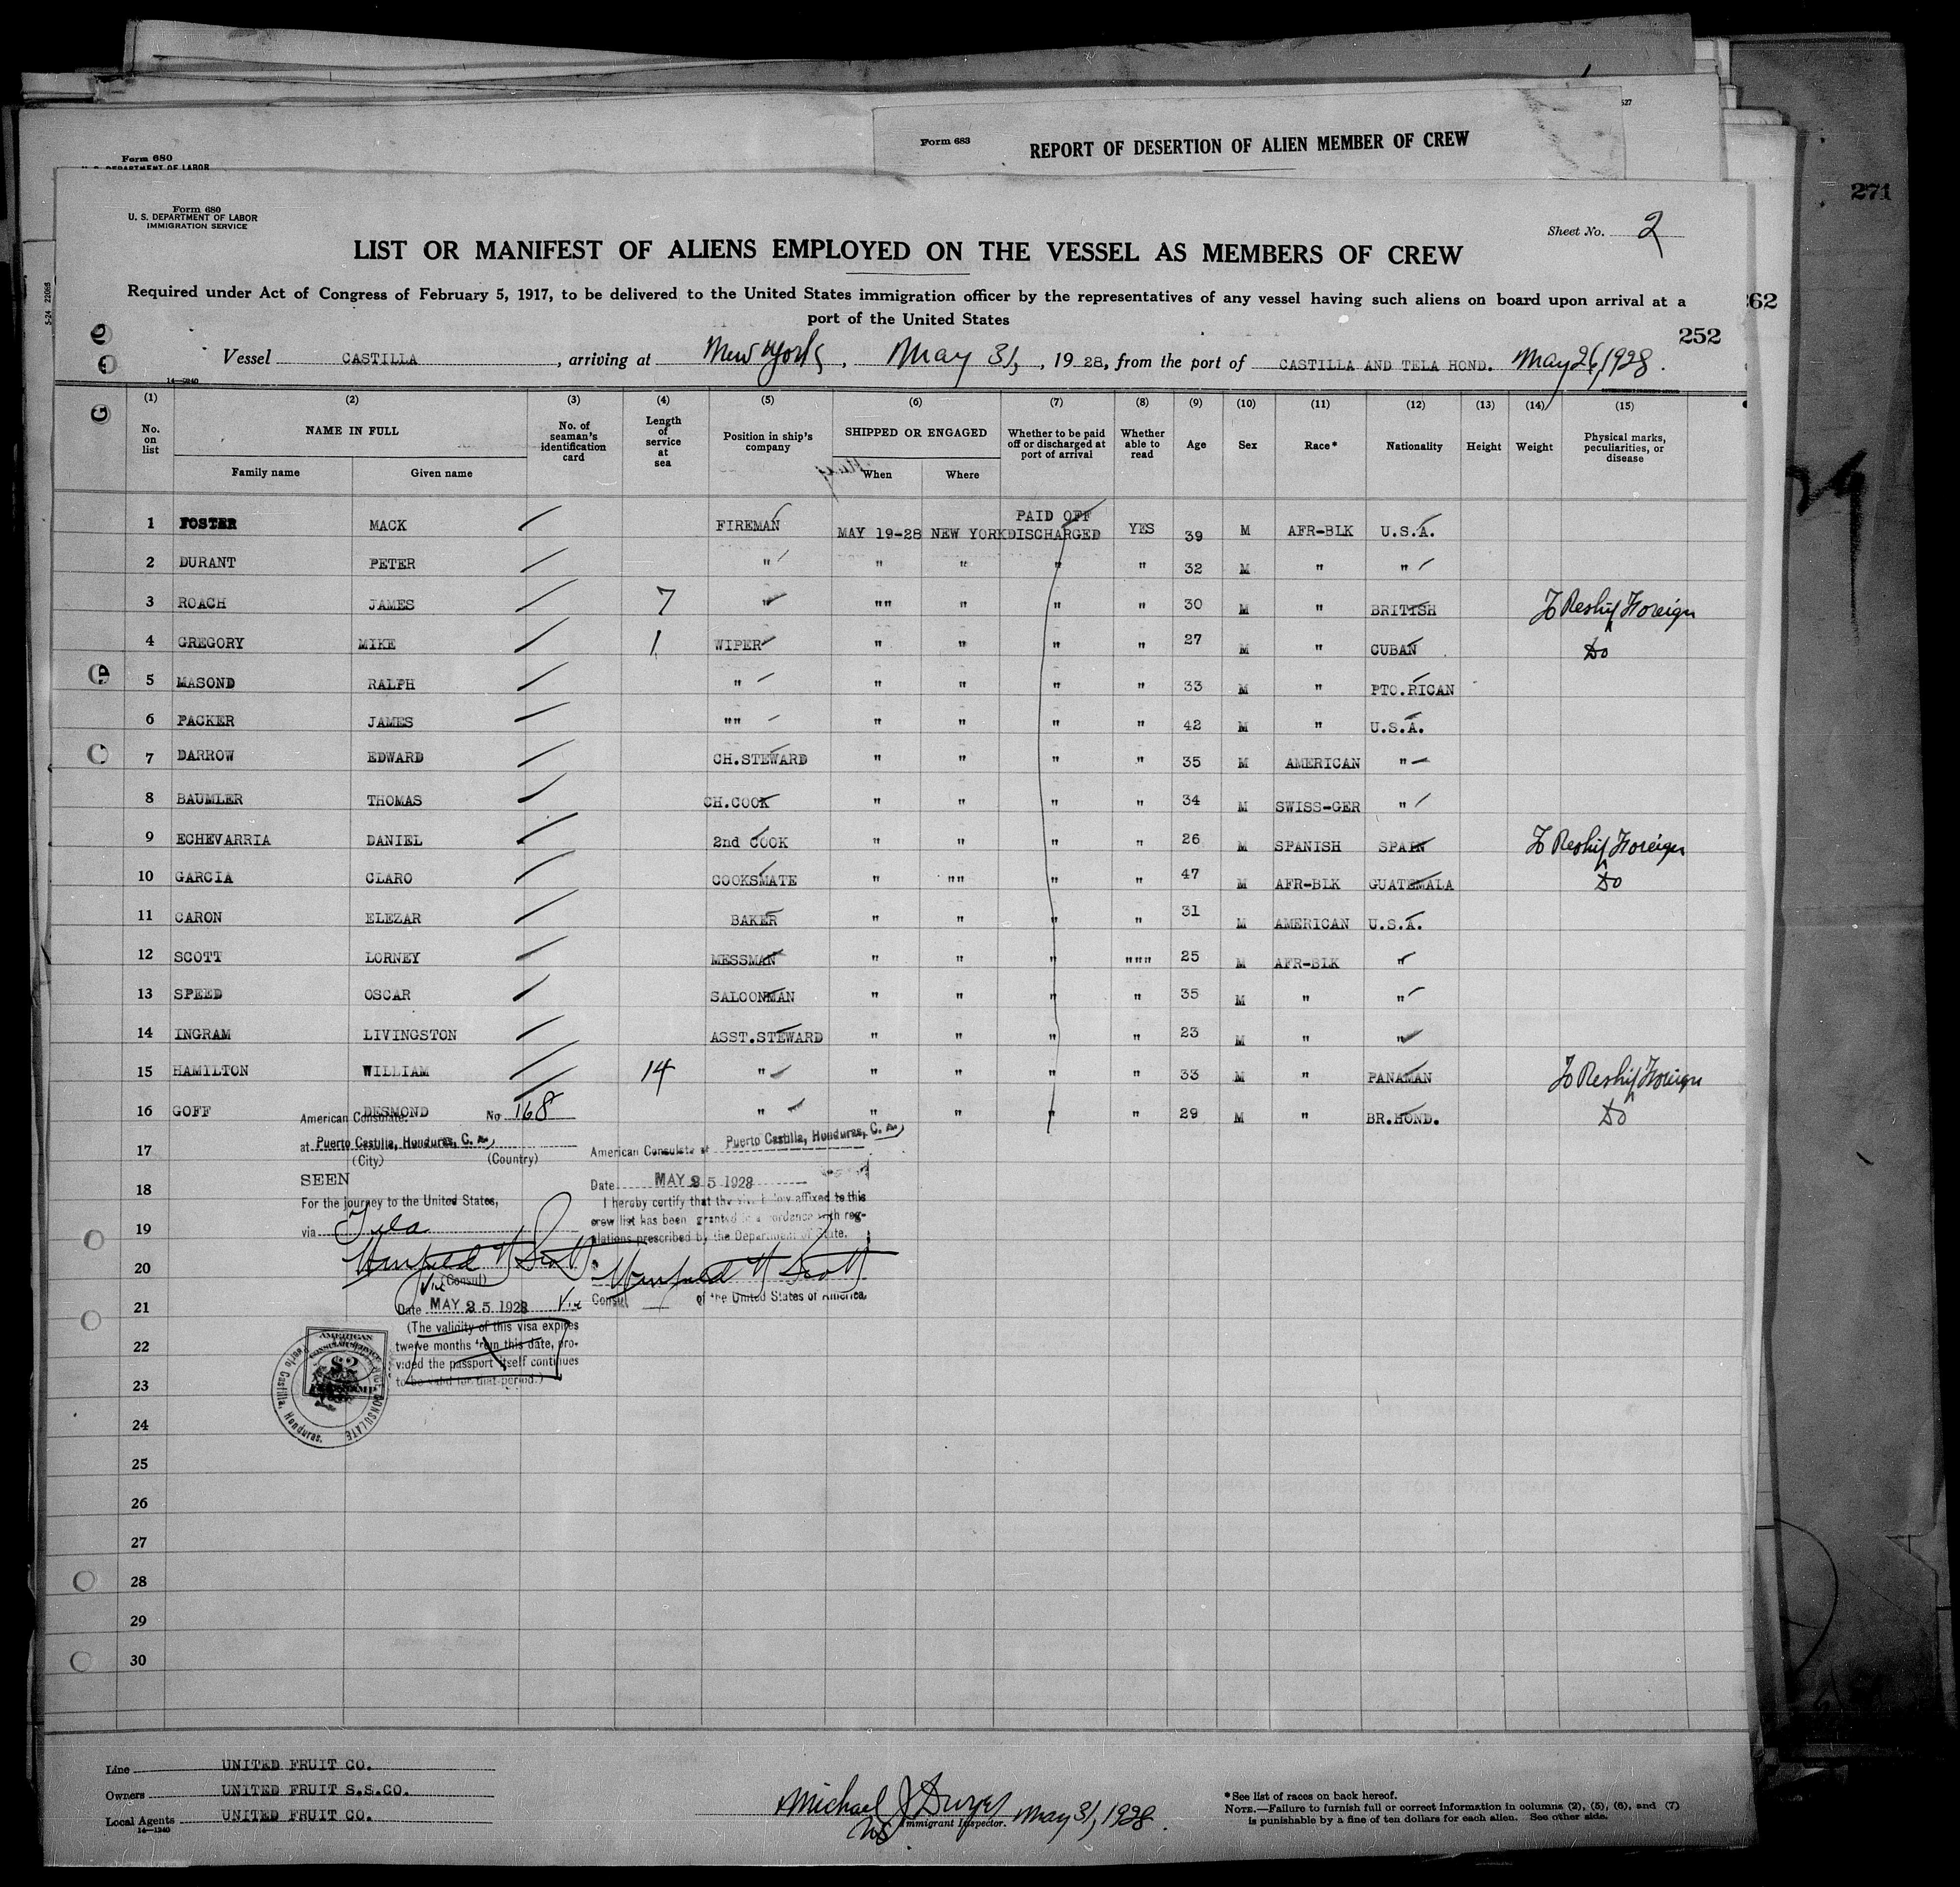 271
527
Form 683
REPORT OF DESERTION OF ALIEN MEMBER OF CREW
Form 680
U. S. DEPARTMENT OF LABOR
Form 680
U. S. DEPARTMENT OF LABOR
IMMIGRATION SERVICE
Sheet No. 2
LIST OR MANIFEST OF ALIENS EMPLOYED ON THE VESSEL AS MEMBERS OF CREW
Required under Act of Congress of February 5, 1917, to be delivered to the United States immigration officer by the representatives of any vessel having such aliens on board upon arrival at a
port of the United States
62
252
Vessel CASTILLA, arriving at New York, May 31, 1928, from the port of CASTILLA AND TELA HOND. May 26, 1928.
14—1240
(1) (2) (3) (4) (5) (6) (7) (8) (9) (10) (11) (12) (13) (14) (15)
No. on list NAME IN FULL No. of seaman's identification card Length of service at sea Position in ship's company SHIPPED OR ENGAGED Whether to be paid off or discharged at port of arrival Whether able to read Age Sex Race* Nationality Height Weight Physical marks, peculiarities, or disease
Family name Given name When Where
1 FOSTER MACK FIREMAN MAY 19-28 NEW YORK PAID OFF DISCHARGED YES 39 M AFR-BLK U.S.A.
2 DURANT PETER " " " " " 32 M " "
3 ROACH JAMES 7 " "" " " " 30 M " BRITISH To Reship Foreign
4 GREGORY MIKE 1 WIPER " " " " 27 M " CUBAN Do
5 MASOND RALPH " " " " " 33 M " PTO.RICAN
6 PACKER JAMES "" " " " " 42 M " U.S.A.
7 DARROW EDWARD CH.STEWARD " " " " 35 M AMERICAN "
8 BAUMLER THOMAS CH.COOK " " " " 34 M SWISS-GER "
9 ECHEVARRIA DANIEL 2nd COOK " " " " 26 M SPANISH SPAIN To Reship Foreign
10 GARCIA CLARO COOKSMATE " "" " " 47 M AFR-BLK GUATEMALA Do
11 CARON ELEZAR BAKER " " " " 31 M AMERICAN U.S.A.
12 SCOTT LORNEY MESSMAN " " " """ 25 M AFR-BLK "
13 SPEED OSCAR SALOONMAN " " " " 35 M " "
14 INGRAM LIVINGSTON ASST.STEWARD " " " " 23 M " "
15 HAMILTON WILLIAM 14 " " " " " 33 M " PANAMAN To Reship Foreign
16 GOFF DESMOND " " " " " 29 M " BR.HOND. Do
17
18
19
20
21
22
23
24
25
26
27
28
29
30
American Consulate. No 168
at Puerto Castilla, Honduras, C. A.
(City) (Country)
SEEN
For the journey to the United States,
via Tela
(Consul)
Vice
Date MAY 25 1928
(The validity of this visa expires
twelve months from this date, pro-
vided the passport itself continues
to be valid for that period.)
AMERICAN
CONSULAR SERVICE
$2
CONSULATE
Puerto Castilla, Honduras.
American Consulate at Puerto Castilla, Honduras, C. A.
Date MAY 25 1928
I hereby certify that the visa below affixed to this
crew list has been granted in accordence with reg-
ulations prescribed by the Department of State.
Vice Consul of the United States of America.
Line UNITED FRUIT CO.
Owners UNITED FRUIT S.S.CO.
Local Agents UNITED FRUIT CO.
14—1240
Michael J Dwyer May 31, 1928.
Immigrant Inspector.
*See list of races on back hereof.
NOTE.—Failure to furnish full or correct information in columns (2), (5), (6), and (7)
is punishable by a fine of ten dollars for each alien. See other side.